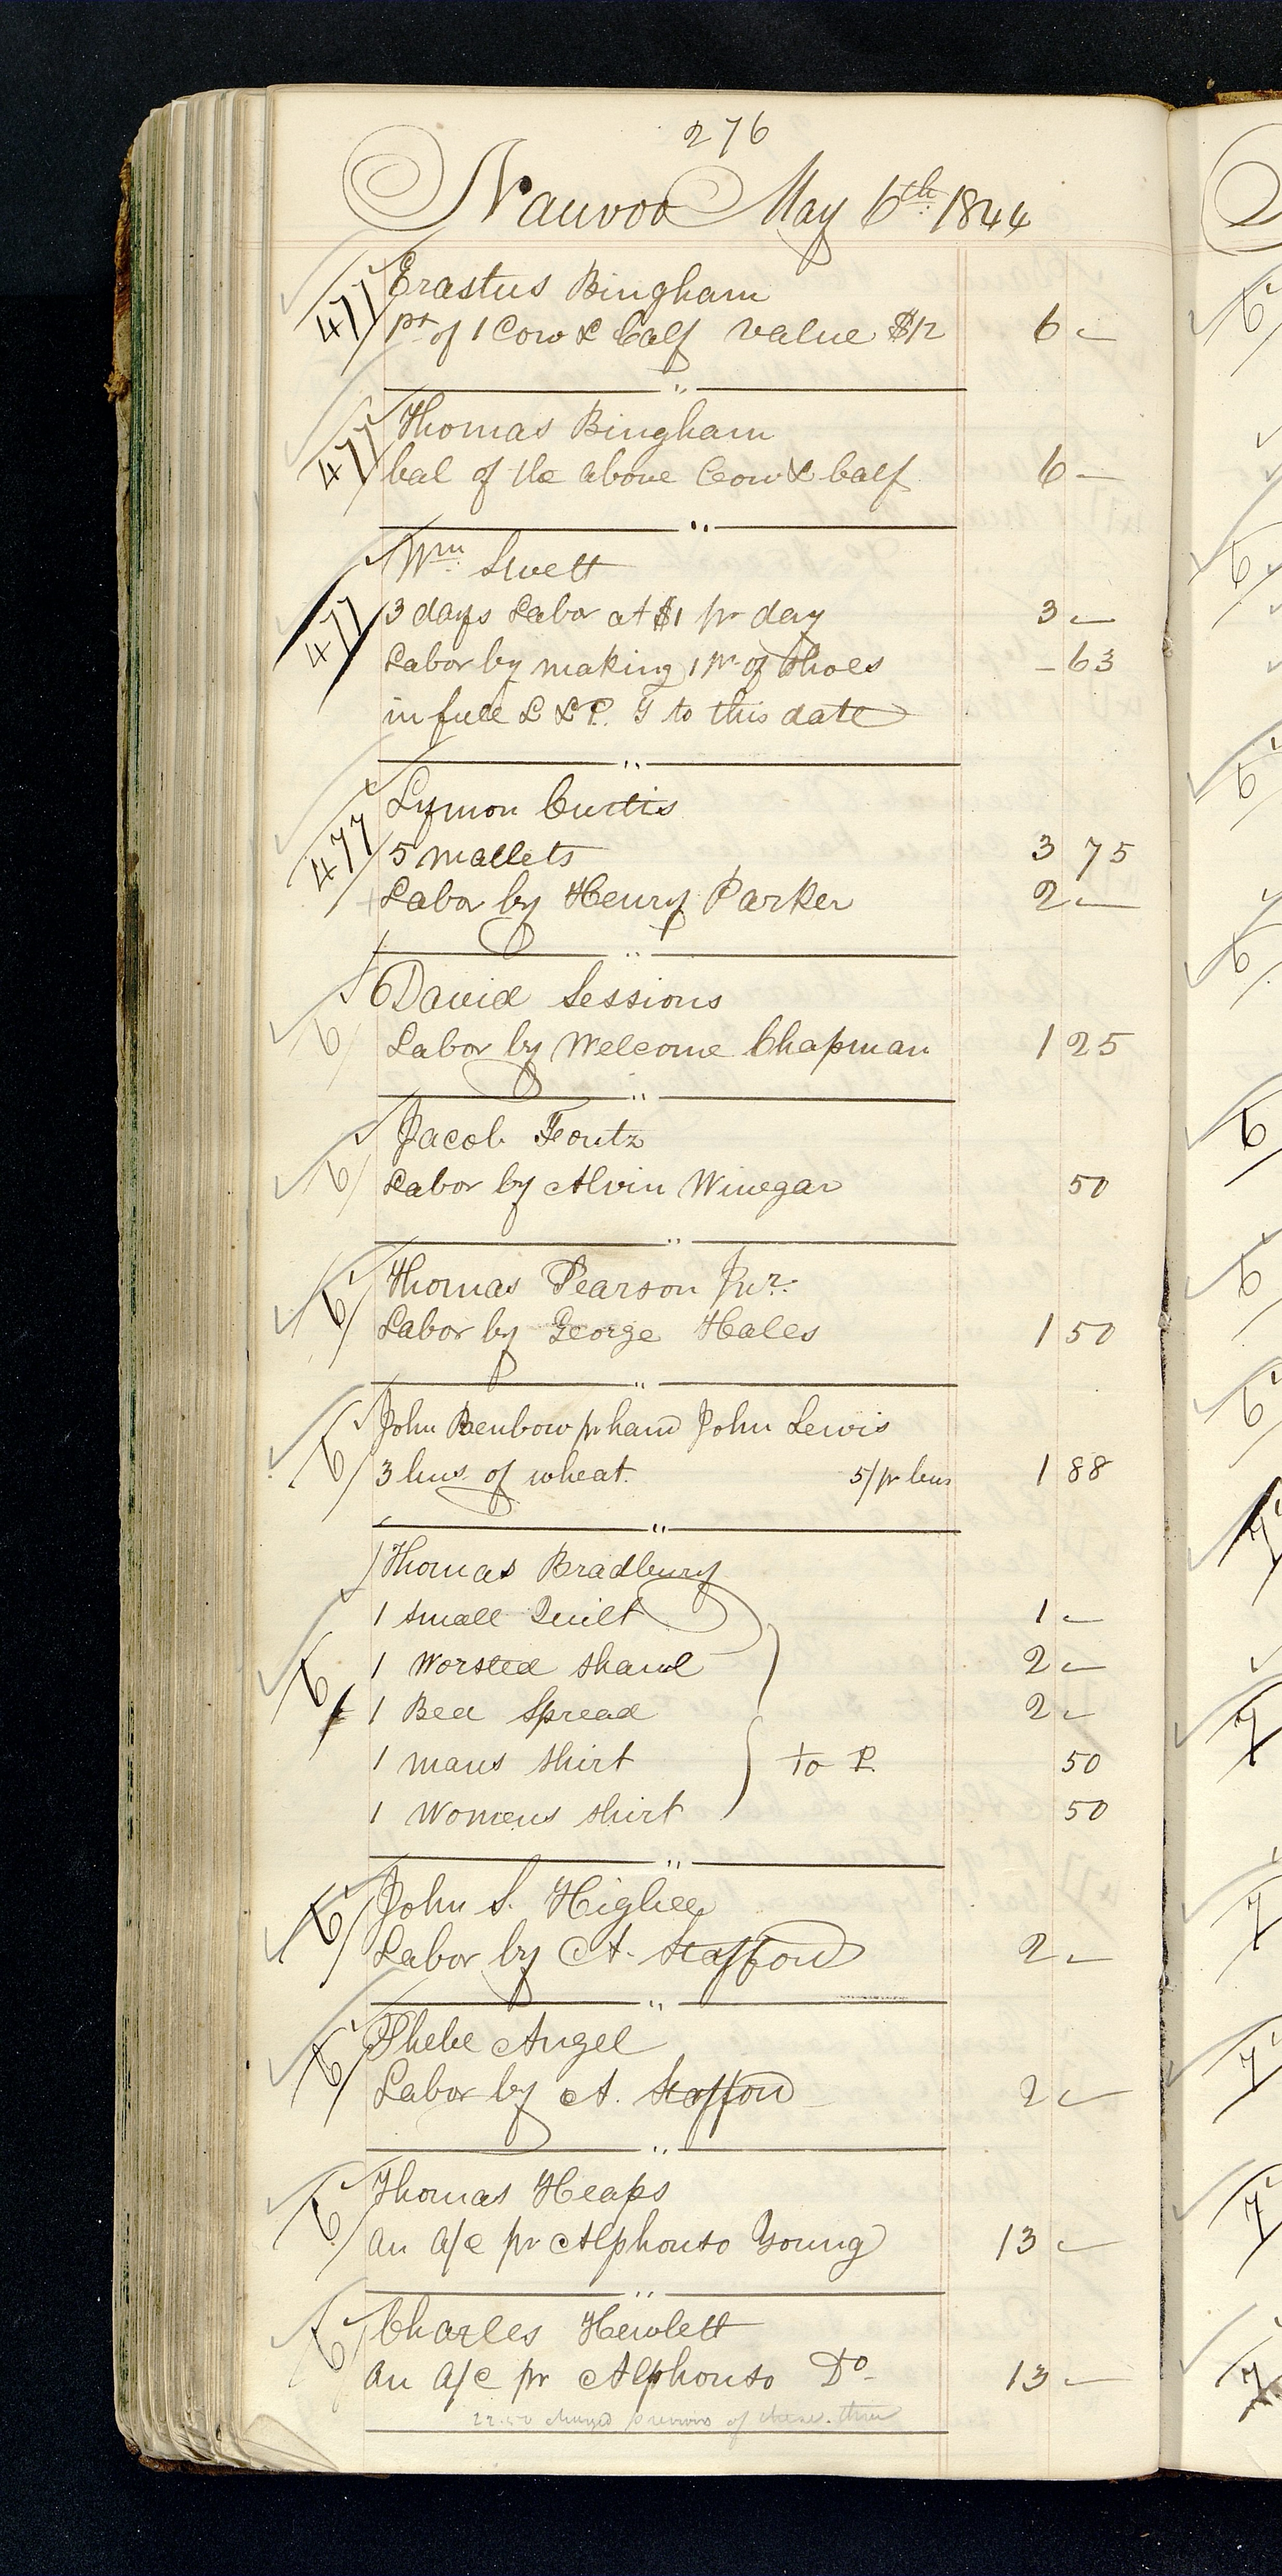 276
Nauvoo May 6th 1844
477 Erastus Bingham
pt of 1 Cow & Calf value $12 6 —
477 Thomas Bingham
bal of the above Cow & Calf 6 —
477 Wm Swett
3 days Labor at $1 pr day 3 —
Labor by making 1 pr of Shoes — 63
in full L & P. G to this date
477 Lymon Curtis
5 mallets 3 75
Labor by Henry Parker 2 —
6 David Sessions
Labor by Welcome Chapman 1 25
6 Jacob Foutz
Labor by Alvin Winegar 50
6 Thomas Pearson Jnr.
Labor by George Hales 1 50
6 John Benbow pr hand John Lewis
3 bus. of wheat. 5/ pr bus 1 88
Thomas Bradbury
1 small Quilt 1 —
6 1 Worsted Shawl 2 —
1 Bed Spread 2 —
1 mans shirt to P. 50
1 Womens shirt 50
6 John S. Higbee
Labor by A. Stafford 2 —
6 Phebe Angel
Labor by A. Stafford 2 —
6 Thomas Heaps
an a/c pr Alphonso Young 13 —
6 Charles Hewlett
an a/c pr Alphonso Do 13 —
charged previous of these three
6
6
6
6
6
6
6
7
7
7
7
7
7